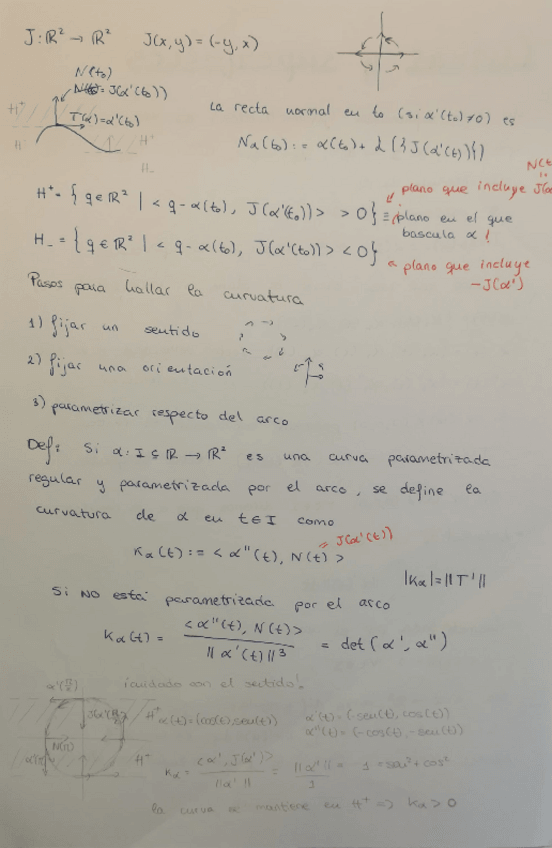 J: ℝ² → ℝ² J(x,y) = (-y, x)
N(t₀)
N(t₀) = J(α'(t₀))
H⁺ T(α) = α'(t₀) H⁺
H₋ H₋
La recta normal en t₀ (si α'(t₀) ≠ 0) es
Nα(t₀) := α(t₀) + L({J(α'(t))})
N(t)
H⁺ = { q ∈ ℝ² | < q - α(t₀), J(α'(t₀)) > > 0 } ≡ plano en el que bascula α!
plano que incluye J(α')
H₋ = { q ∈ ℝ² | < q - α(t₀), J(α'(t₀)) > < 0 }
plano que incluye -J(α')
Pasos para hallar la curvatura
1) fijar un sentido
2) fijar una orientación
3) parametrizar respecto del arco
Def: Si α: I ⊆ ℝ → ℝ² es una curva parametrizada
regular y parametrizada por el arco, se define la
curvatura de α en t ∈ I como
= J(α'(t))
Kα(t) := < α''(t), N(t) >
|Kα| = ||T'||
Si NO está parametrizada por el arco
Kα(t) = <α''(t), N(t)> / ||α'(t)||³ = det(α', α'')
¡cuidado con el sentido!
α'(π/2)
J(α'(π/2)) H⁺ α(t) = (cos(t), sen(t)) α'(t) = (-sen(t), cos(t))
α''(t) = (-cos(t), -sen(t))
N(π) H⁺
Kα = <α', J(α')> / ||α'|| = ||α''|| / 1 = 1 = sen² + cos²
la curva se mantiene en H⁺ => Kα > 0